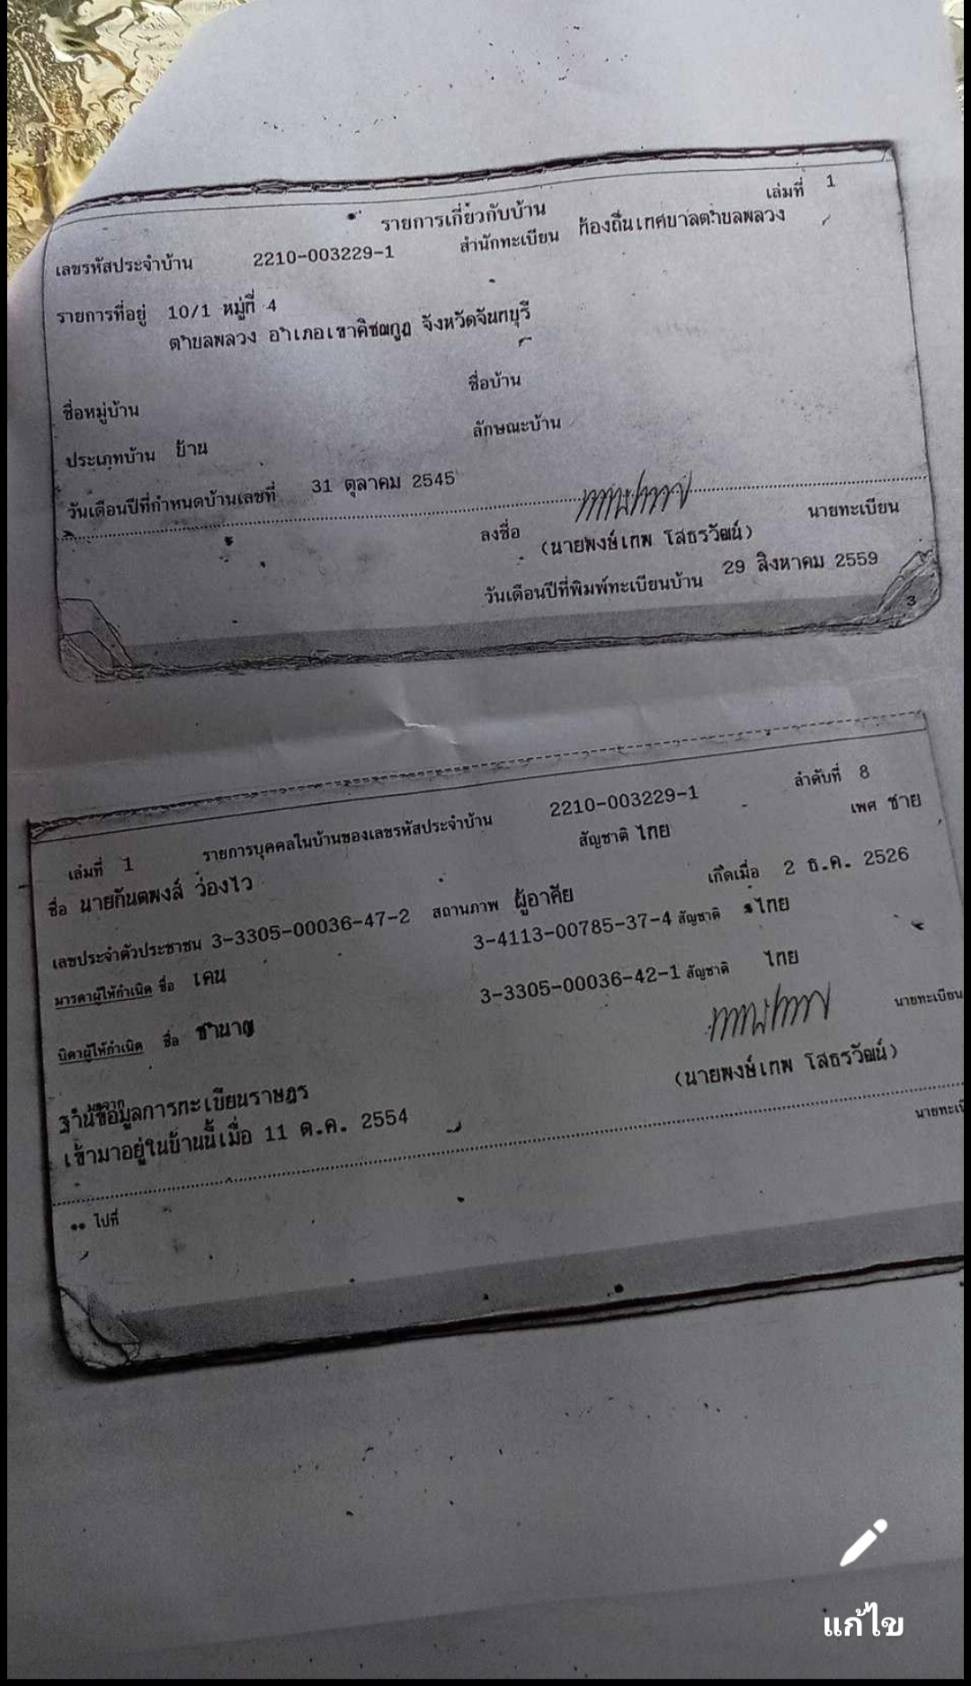 เล่มที่ 1
รายการเกี่ยวกับบ้าน
เลขรหัสประจำบ้าน 2210-003229-1 สำนักทะเบียน ท้องถิ่นเทศบาลตำบลพลวง
รายการที่อยู่ 10/1 หมู่ที่ 4
ตำบลพลวง อำเภอเขาคิชฌกูฏ จังหวัดจันทบุรี
ชื่อหมู่บ้าน ชื่อบ้าน
ประเภทบ้าน บ้าน ลักษณะบ้าน
วันเดือนปีที่กำหนดบ้านเลขที่ 31 ตุลาคม 2545
ลงชื่อ นายทะเบียน
(นายพงษ์เทพ โสธรวัฒน์)
วันเดือนปีที่พิมพ์ทะเบียนบ้าน 29 สิงหาคม 2559
3
เล่มที่ 1 รายการบุคคลในบ้านของเลขรหัสประจำบ้าน 2210-003229-1 ลำดับที่ 8
ชื่อ นายกันตพงส์ ว่องไว สัญชาติ ไทย เพศ ชาย
เลขประจำตัวประชาชน 3-3305-00036-47-2 สถานภาพ ผู้อาศัย เกิดเมื่อ 2 ธ.ค. 2526
มารดาผู้ให้กำเนิด ชื่อ เคน 3-4113-00785-37-4 สัญชาติ ไทย
บิดาผู้ให้กำเนิด ชื่อ ชำนาญ 3-3305-00036-42-1 สัญชาติ ไทย
ฐานข้อมูลการทะเบียนราษฎร
นายทะเบียน
(นายพงษ์เทพ โสธรวัฒน์)
เข้ามาอยู่ในบ้านนี้เมื่อ 11 ต.ค. 2554
ไปที่
แก้ไข